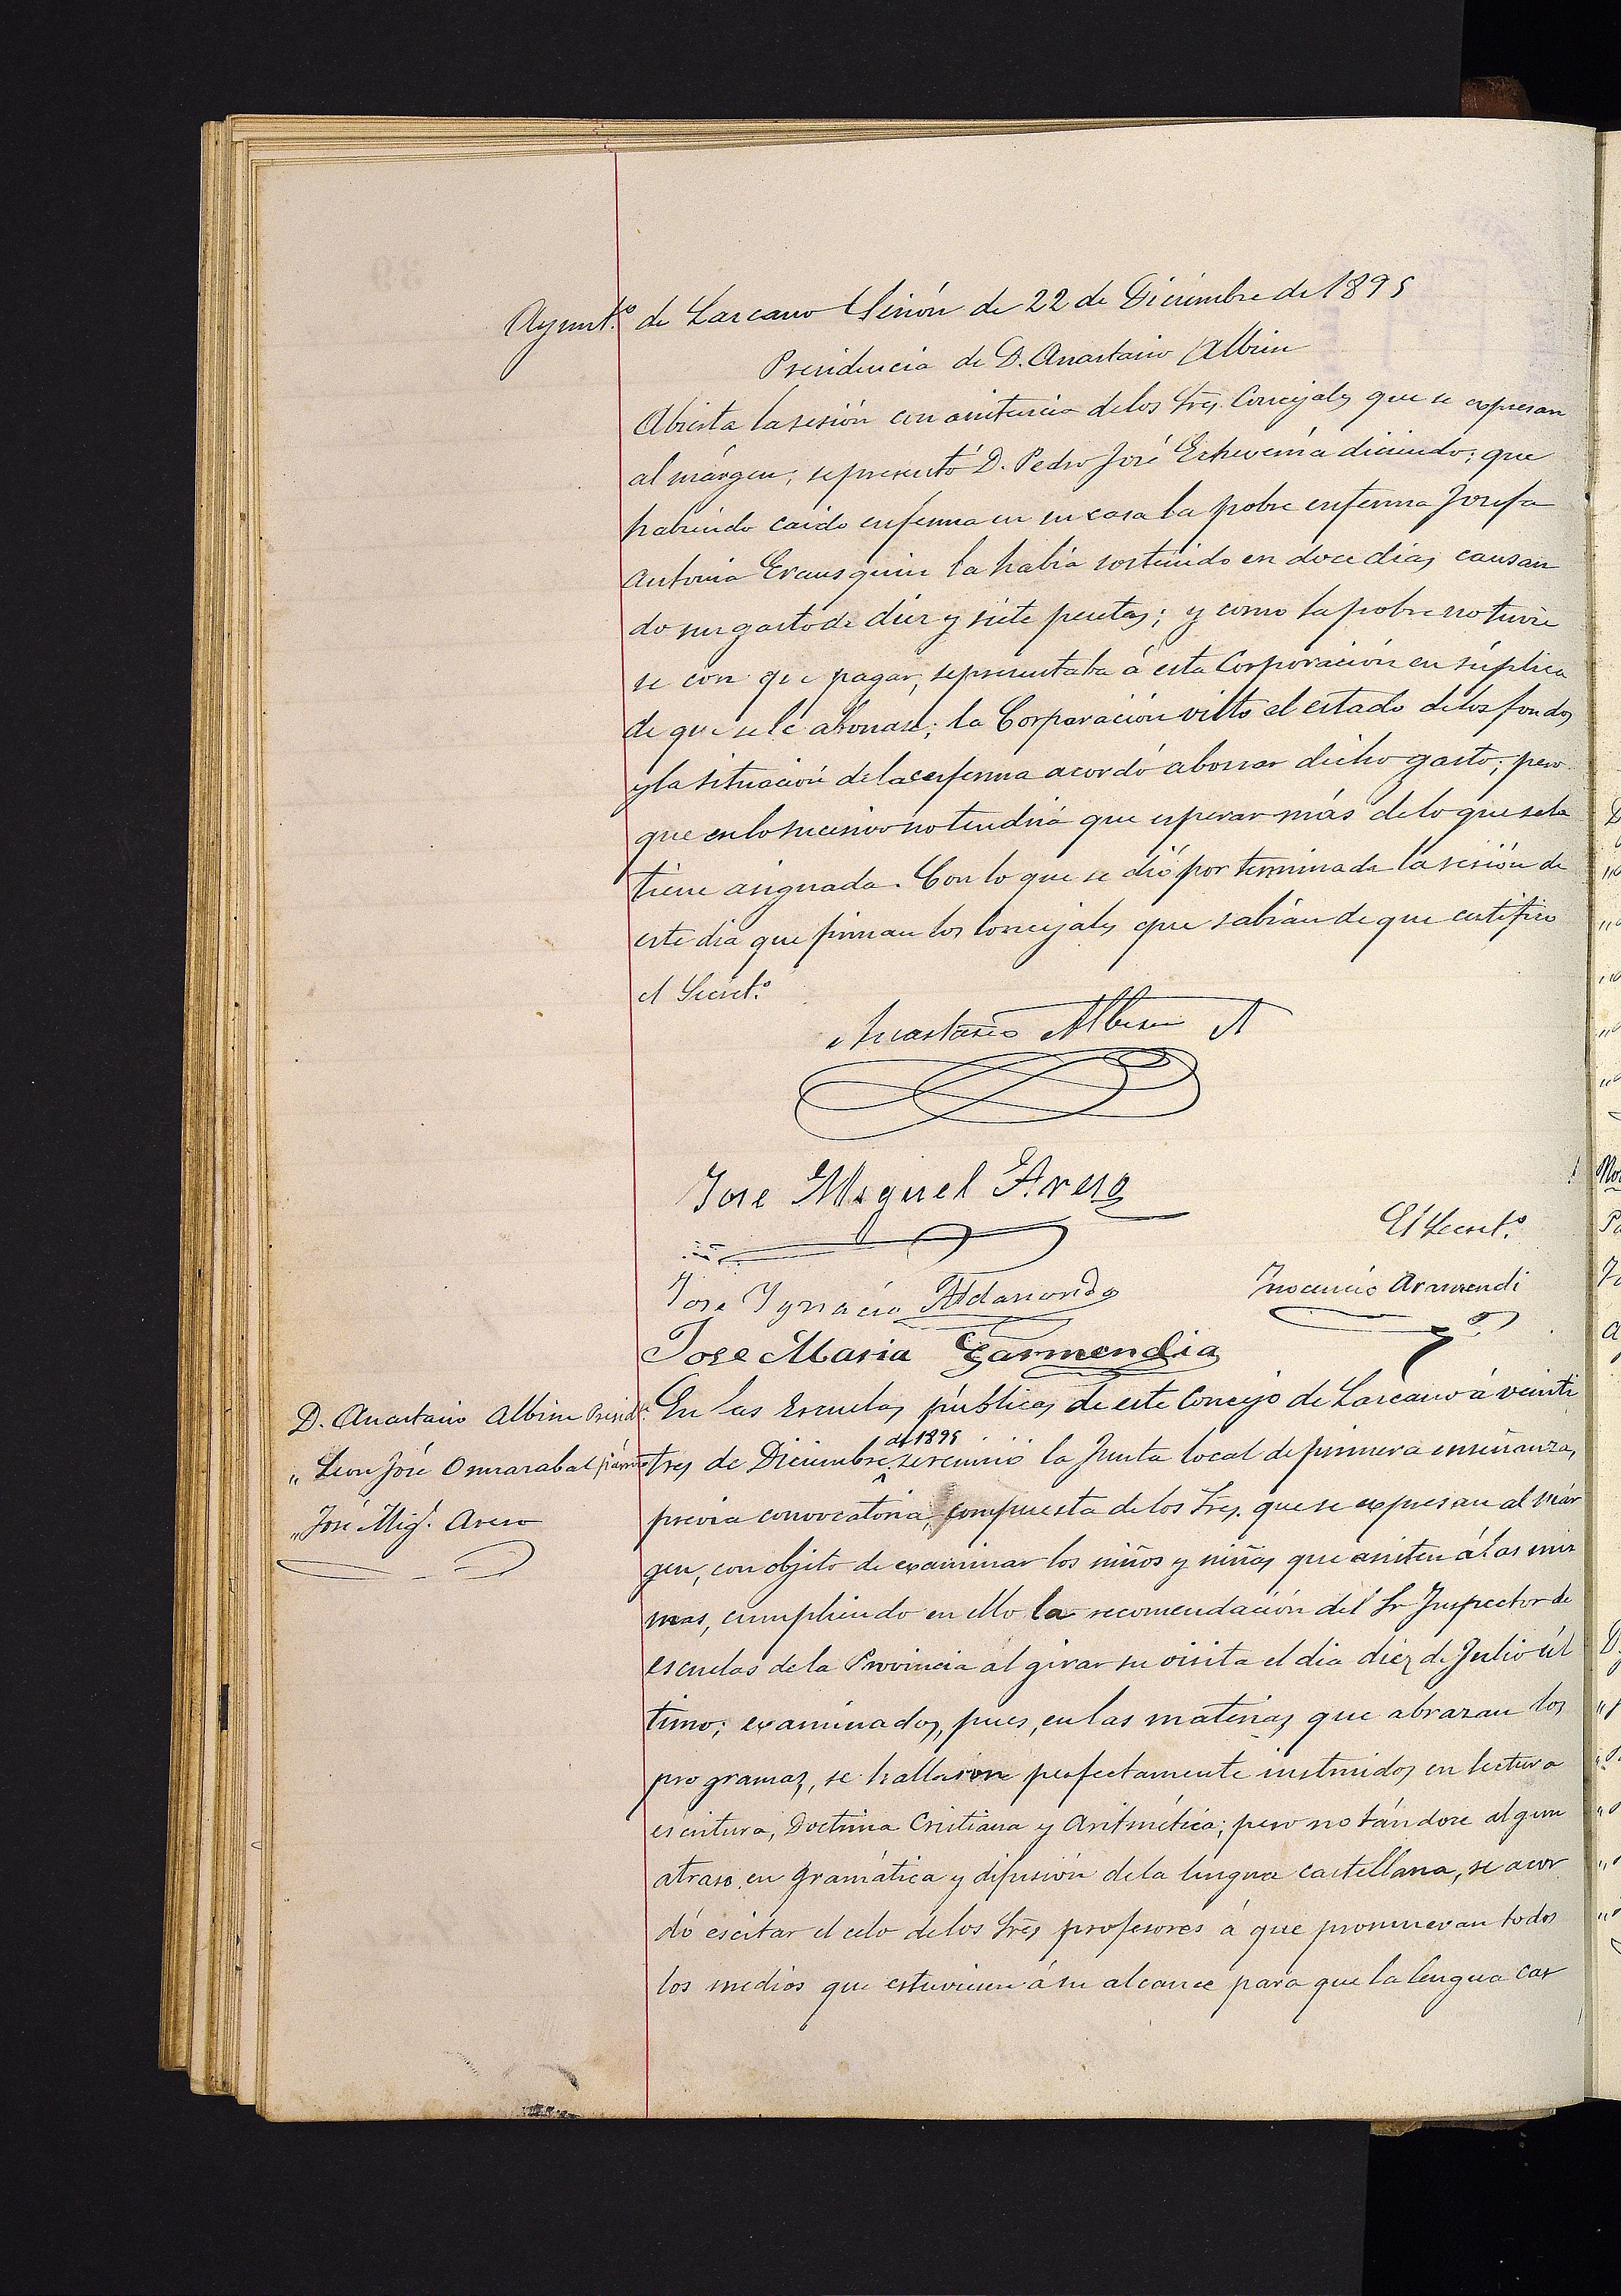 Ayunt.º de Lazcano Sesión de 22 de Diciembre de 1895
Presidencia de D. Anastasio Albisu
Abierta la sesión con asistencia de los Sres. Concejales que se expresan
al márgen, se presentó D. Pedro José Echeverria diciendo; que
habiendo caido enferma en su casa la pobre enferma Josefa
Antonia Erausquin la habia sostenido en doce dias causan
do un gasto de diez y siete pesetas; y como la pobre no tuvie
se con que pagar, se presentaba á esta Corporación en súplica
de que se le abonase; la Corporación visto el estado de los fondos
y la situación de la enferma acordó abonar dicho gasto; pero
que en lo sucesivo no tendría que esperar más de lo que se la
tiene asignada. Con lo que se dió por terminada la sesión de
este dia que firman los Concejales que sabían de que certifico
el Secret.º
Anastasio Albisu
Jose Miguel Areso
El Secret.º
Jose Ygnacio Aldasoro
Inocencio Armendi
Jose Maria Garmendia
D. Anastasio Albisu Presid.
" Leon José Omnarabal párroco
" José Mig.l Areso
En las Escuelas públicas de este Concejo de Lazcano á veinti
tres de Diciembre de 1895 se reunió la Junta local de primera enseñanza,
previa convocatoria, compuesta de los Sres. que se expresan al már
gen, con objeto de examinar los niños y niñas que asisten á las mis
mas, cumpliendo en ello la recomendación del Sr Inspector de
escuelas de la Provincia al girar su visita el dia diez de Julio úl
timo; examinados, pues, en las materias que abrazan los
programas, se hallaron perfectamente instruidos en lectura
escritura, Doctrina Cristiana y Aritmética; pero notándose algun
atraso en gramática y difusión de la lengua castellana, se acor
dó escitar el celo de los Sres profesores á que promuevan todos
los medios que estuviesen á su alcance para que la lengua cas